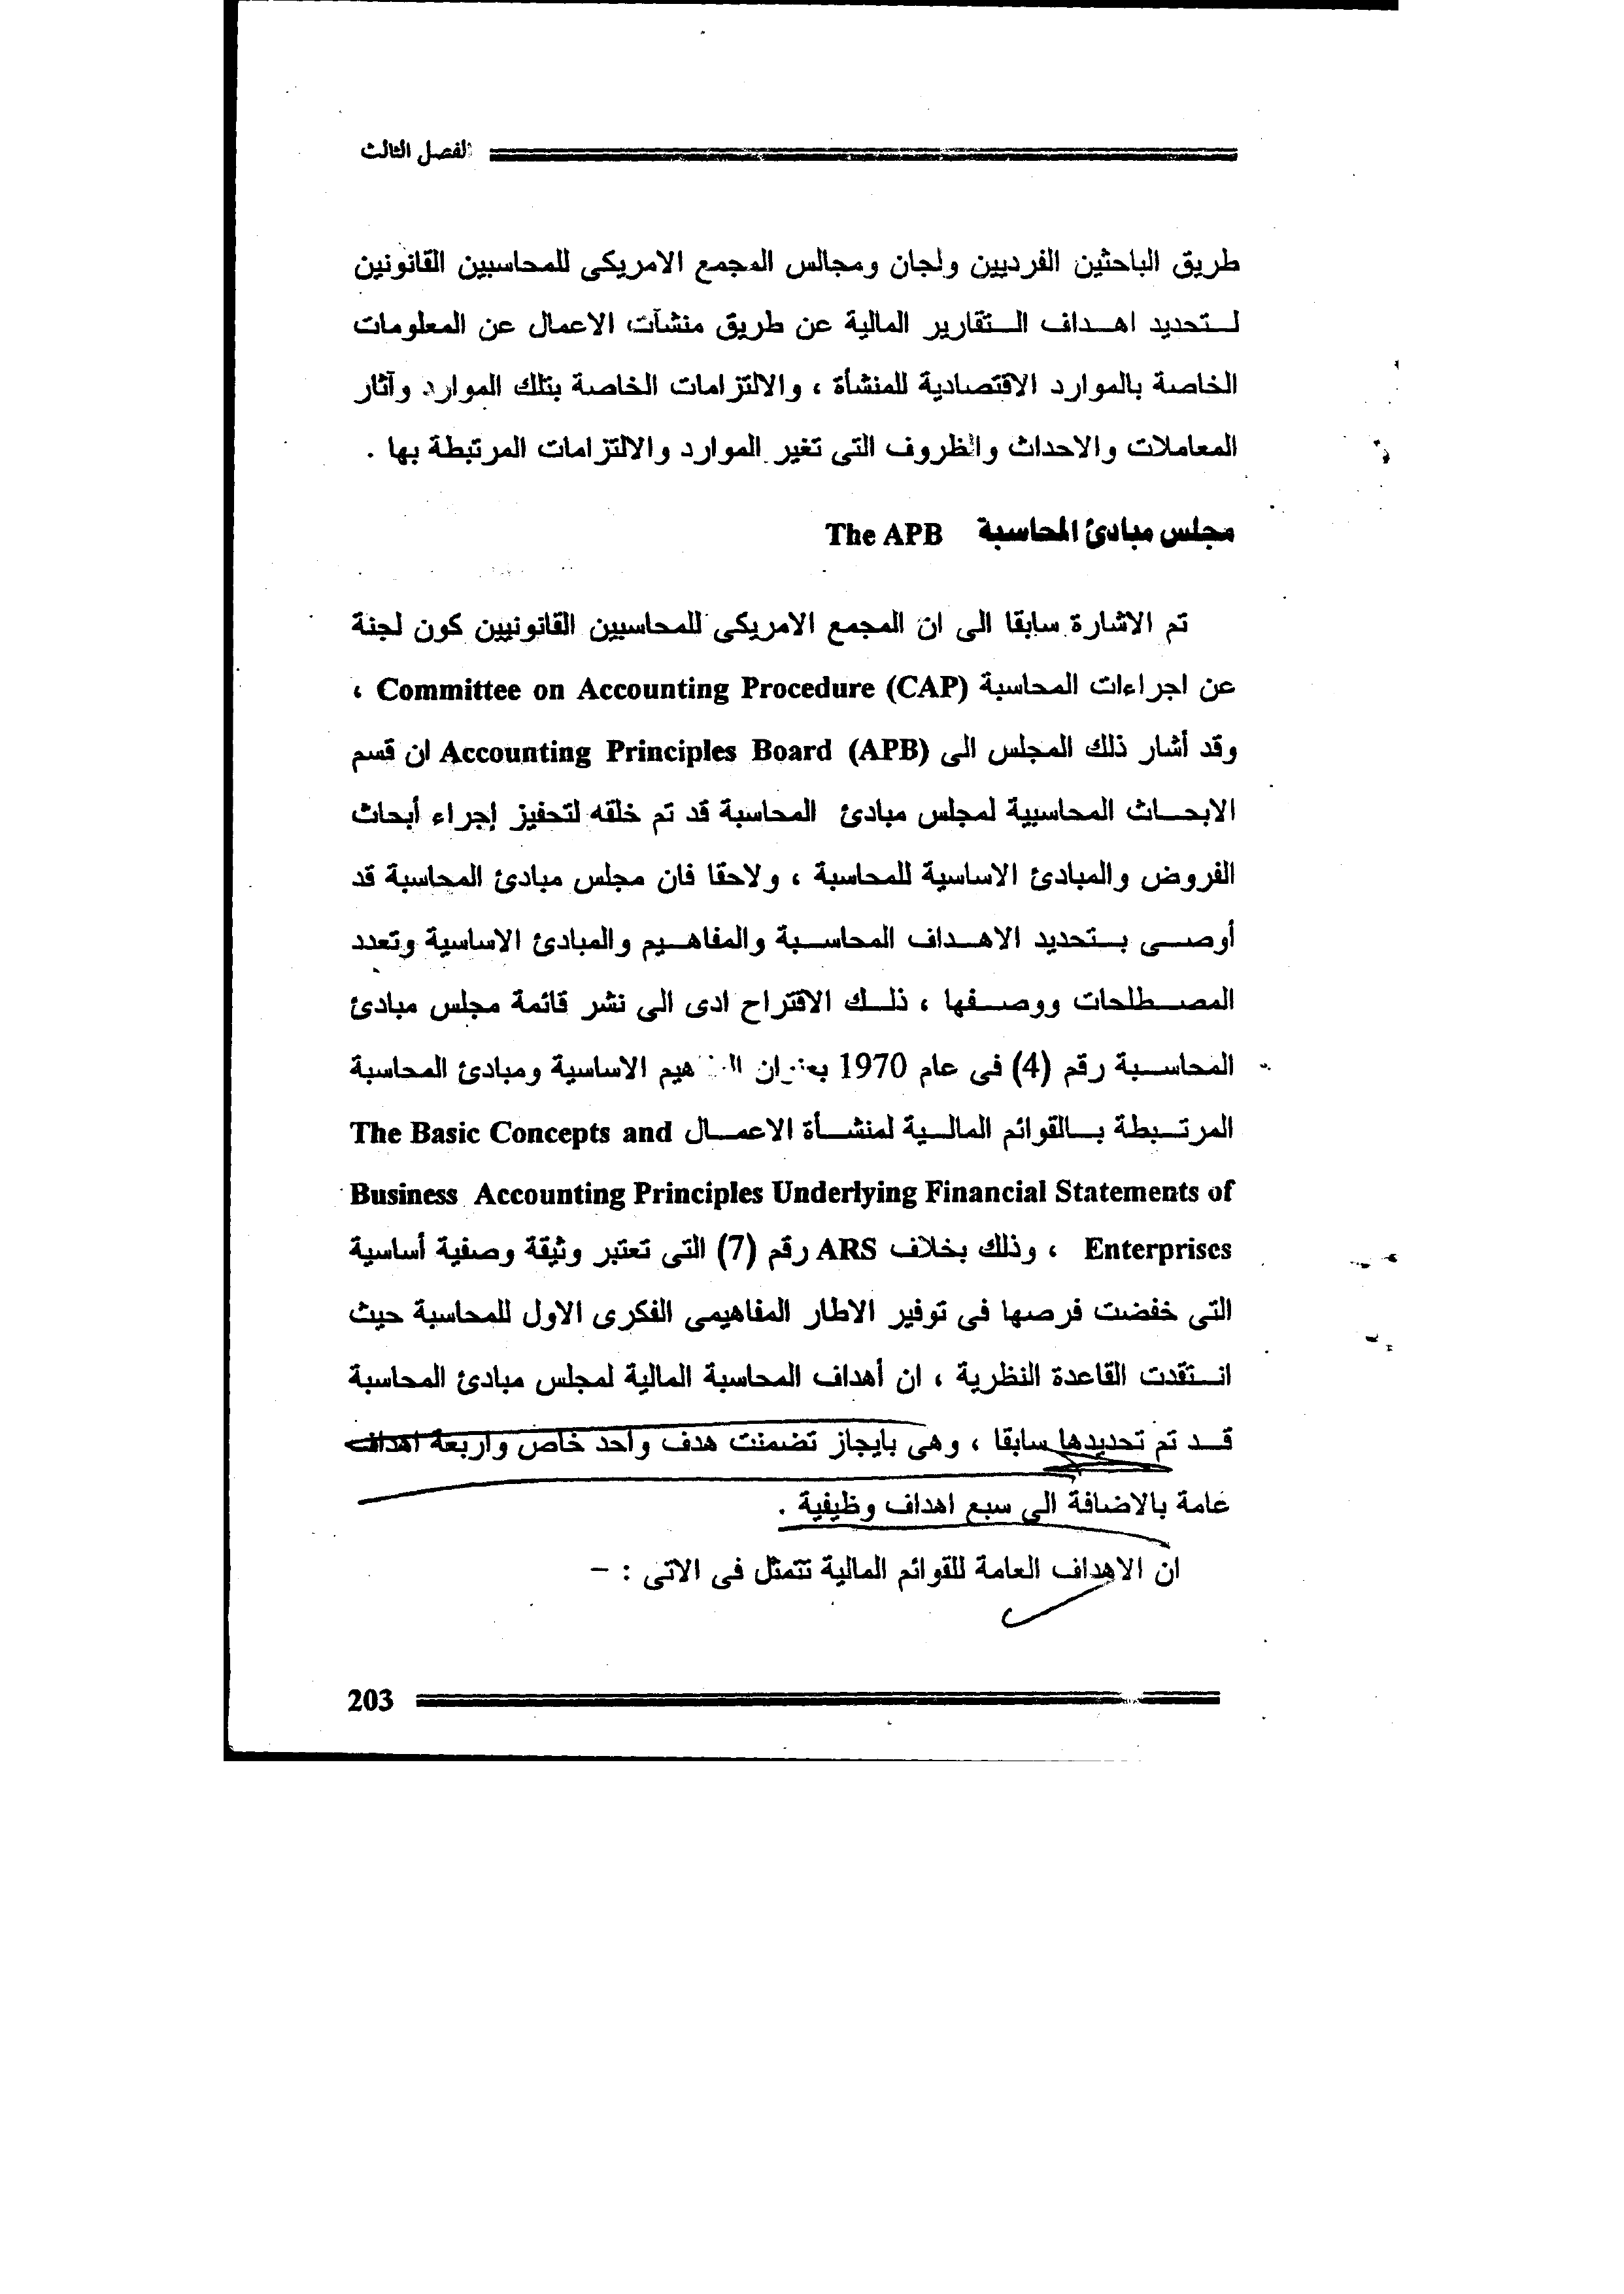 الفصل الثالث
طريق الباحثين الفرديين ولجان ومجالس المجمع الامريكى للمحاسبين القانونين
لتحديد اهداف التقارير المالية عن طريق منشآت الاعمال عن المعلومات
الخاصة بالموارد الاقتصادية للمنشأة ، والالتزامات الخاصة بتلك الموارد وآثار
المعاملات والاحداث والظروف التى تغير الموارد والالتزامات المرتبطة بها .
مجلس مبادئ المحاسبة The APB
تم الاشارة سابقا الى ان المجمع الامريكى للمحاسبين القانونيين كون لجنة
عن اجراءات المحاسبة Committee on Accounting Procedure (CAP) ،
وقد أشار ذلك المجلس الى Accounting Principles Board (APB) ان قسم
الابحاث المحاسبية لمجلس مبادئ المحاسبة قد تم خلقه لتحفيز إجراء أبحاث
الفروض والمبادئ الاساسية للمحاسبة ، ولاحقا فان مجلس مبادئ المحاسبة قد
أوصى بتحديد الاهداف المحاسبة والمفاهيم والمبادئ الاساسية وتعدد
المصطلحات ووصفها ، ذلك الاقتراح ادى الى نشر قائمة مجلس مبادئ
المحاسبة رقم (4) فى عام 1970 بعنوان الاساسية ومبادئ المحاسبة
المرتبطة بالقوائم المالية لمنشأة الاعمال The Basic Concepts and
Business Accounting Principles Underlying Financial Statements of
Enterprises ، وذلك بخلاف ARS رقم (7) التى تعتبر وثيقة وصفية أساسية
التى خفضت فرصها فى توفير الاطار المفاهيمى الفكرى الاول للمحاسبة حيث
انتقدت القاعدة النظرية ، ان أهداف المحاسبة المالية لمجلس مبادئ المحاسبة
قد تم تحديدها سابقا ، وهى بايجاز تضمنت هدف واحد خاص واربعة اهداف
عامة بالاضافة الى سبع اهداف وظيفية .
ان الاهداف العامة للقوائم المالية تتمثل فى الاتى : –
203